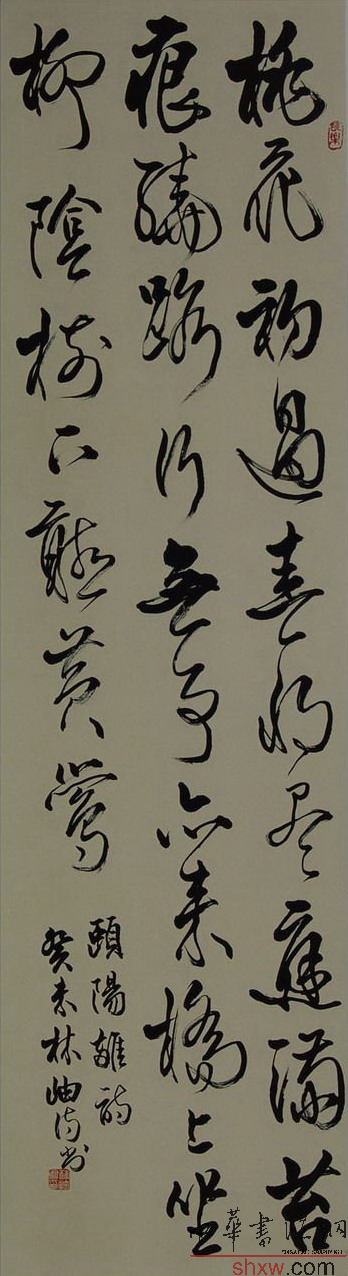 桃花初過春將盡庭滿苔
痕繞路行無事亦來橋上坐
柳陰樹下聽黃鶯
頤陽雜詩
癸未林岫詩書
華書法網
shxw.com